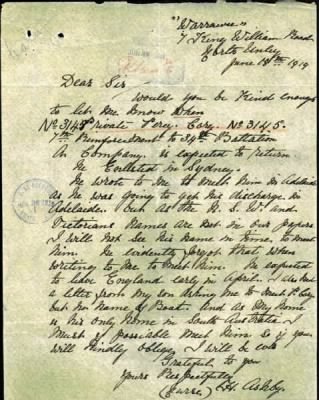 "Warrawee"
7 King William Road
North Unley
June 18th 1919
Dear Sir
Would you be kind enough
to let me know when
No 3145 Private Percy Cory No 3145.
7th Reinforcement to 34th Battalion
A Company. is expected to return
He Enlisted in Sydney.
He wrote to me to meet him in Adelaide
as he was going to get his discharge in
Adelaide. But as the N. S. W. and
Victorians Names are not in our papers
I will not see his name in time, to meet
him. He evidently forgot that when
writing to me to meet him. He expected
to leave England early in April. I also had
a letter from my son asking me to meet
but no Name of Boat. And as my Home
is his only Home in South Australia I
must if possible meet him So if you
will kindly oblige I will be
Grateful to you
Yours Respectfully
H. Ashby.